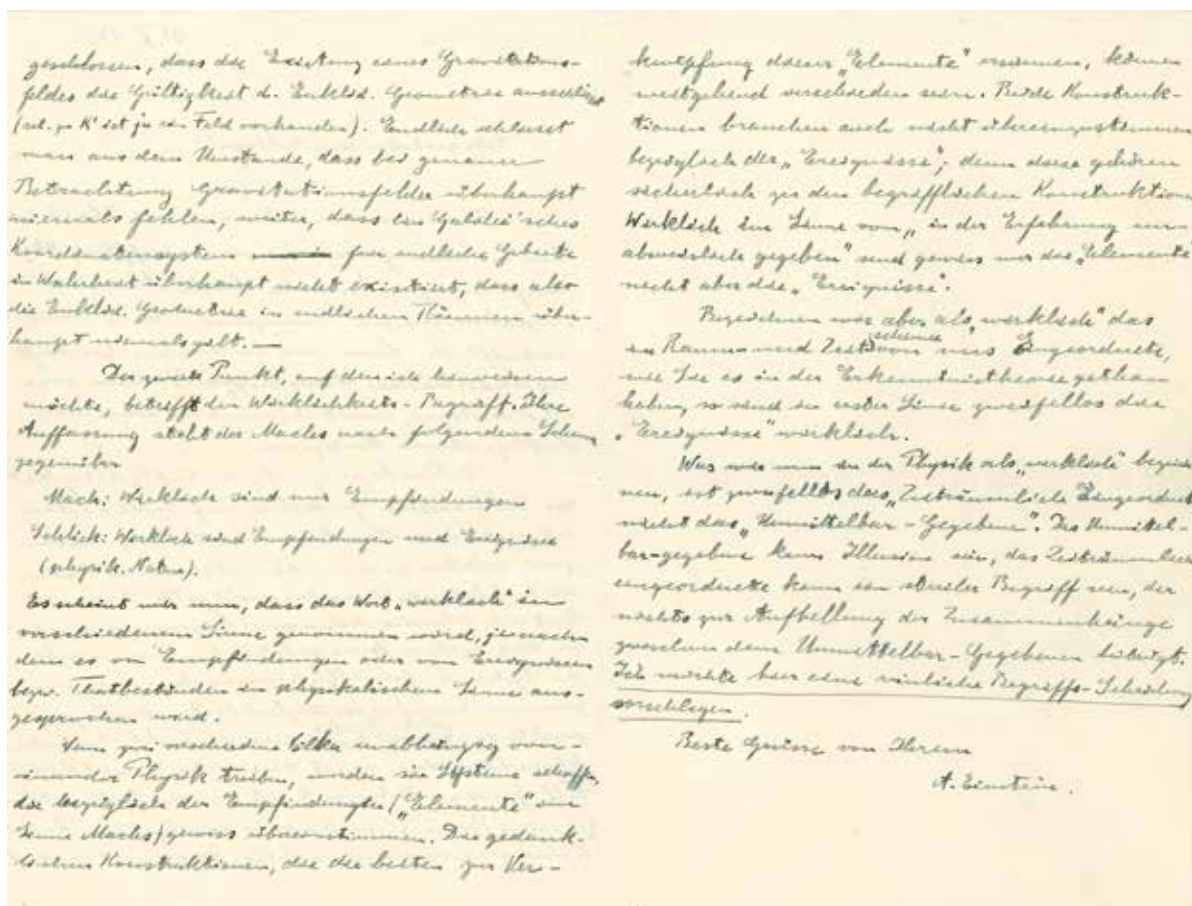 geschlossen, dass die Existenz eines Gravitations-
feldes die Gültigkeit d. Euklid. Geometrie ausschliesst
(rel. zu K' ist ja ein Feld vorhanden). Endlich schliesst
man aus dem Umstande, dass bei genauer
Betrachtung Gravitationsfelder überhaupt
niemals fehlen, weiter, dass ein Galilei'sches
Koordinatensystem für endliche Gebiete
in Wahrheit überhaupt nicht existiert, dass also
die Euklid. Geometrie in endlichen Räumen über-
haupt niemals gilt. —
Der zweite Punkt, auf den ich hinweisen
möchte, betrifft den Wirklichkeits-Begriff. Ihre
Auffassung steht der Machs nach folgendem Schema
gegenüber
Mach: Wirklich sind nur Empfindungen
Schlick: Wirklich sind Empfindungen und Ereignisse
(physik. Natur).
Es scheint mir nun, dass das Wort „wirklich" in
verschiedenem Sinne genommen wird, je nach
dem es von Empfindungen oder von Ereignissen
bezw. Thatbeständen in physikalischem Sinne aus-
gesprochen wird.
Wenn zwei verschiedene Völker unabhängig von-
einander Physik treiben, werden sie Systeme schaffen,
die bezüglich der Empfindungen („Elemente" im
Sinne Machs) gewiss übereinstimmen. Die gedank-
lichen Konstruktionen, die die beiden zur Ver-
knüpfung dieser „Elemente" ersinnen, können
weitgehend verschieden sein. Beide Konstruk-
tionen brauchen auch nicht übereinzustimmen
bezüglich der „Ereignisse"; denn diese gehören
sicherlich zu den begrifflichen Konstruktionen
Wirklich im Sinne von „in der Erfahrung un-
abweislich gegeben" sind gewiss nur die „Elemente
nicht aber die „Ereignisse".
Bezeichnen wir aber als „wirklich" das
in Raum und Zeit von uns Eingeordnete,
wie Sie es in der Erkenntnistheorie gethan
haben, so sind in erster Linie zweifellos die
„Ereignisse" wirklich.
Was wir nun in der Physik als „wirklich" bezeich-
nen, ist zweifellos das „Zeiträumlich Eingeordnete
nicht das „Unmittelbar-Gegebene". Das Unmittel-
bar-gegebene kann Illusion sein, das Zeiträumlich
eingeordnete kann ein steriler Begriff sein, der
nichts zur Aufhellung der Zusammenhänge
zwischen dem Unmittelbar-Gegebenen beiträgt.
Ich möchte hier eine reinliche Begriffs-Scheidung
vorschlagen.
Beste Grüsse von Ihrem
A. Einstein.